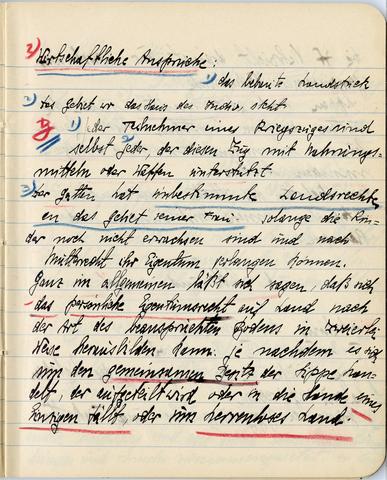 2) Wirtschaftliche Ansprüche:
1) das bebaute Landstück
2) das Gebiet wo das Haus des Indiv. steht
1) der Teilnehmer eines Kriegszuges und
selbst jeder der diesen Zug mit Nahrungs-
mitteln oder Waffen unterstützt
3) der Gatten hat unbestimmte Landsrechte
an das Gebiet seiner Frau. solange die Kin-
der noch nicht erwachsen sind und nach
Mutterrecht ihr Eigentum verlangen können.
Ganz im allgemeinen läßt sich sagen, daß sich
das persönliche Eigentumsrecht auf Land nach
der Art des beanspruchten Bodens in zweierlei
Weise herausbilden kann. je nachdem es sich
um den gemeinsamen Besitz der Sippe han-
delt, der aufgeteilt wird oder in die Hände eines
Einzigen fällt, oder um herrenloses Land.